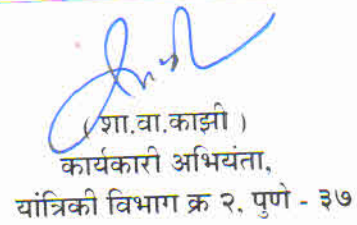 ( शा.वा.काझी )
कार्यकारी अभियंता,
यांत्रिकी विभाग क्र २, पुणे - ३७